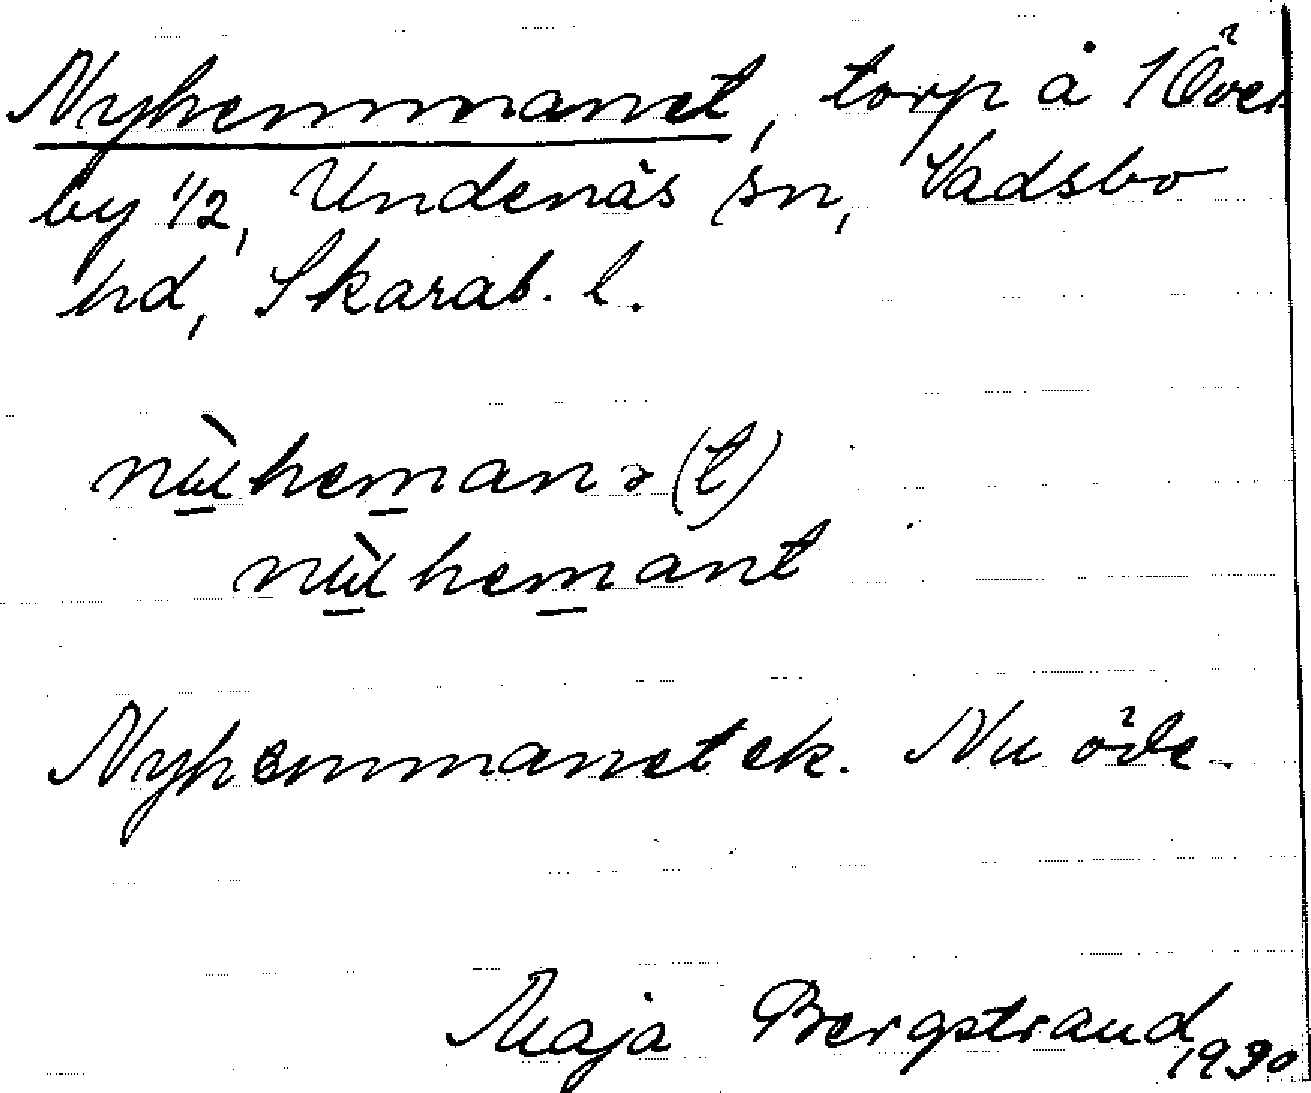 Nyhemmanet, torp å 1 Över
by 1/2, Undenäs sn, Vadsbo
hd, Skarab. l.
nùhemanə(t)
nùhemant
Nyhemmanet ek. Nu öde.
Maja Bergstrand 1930